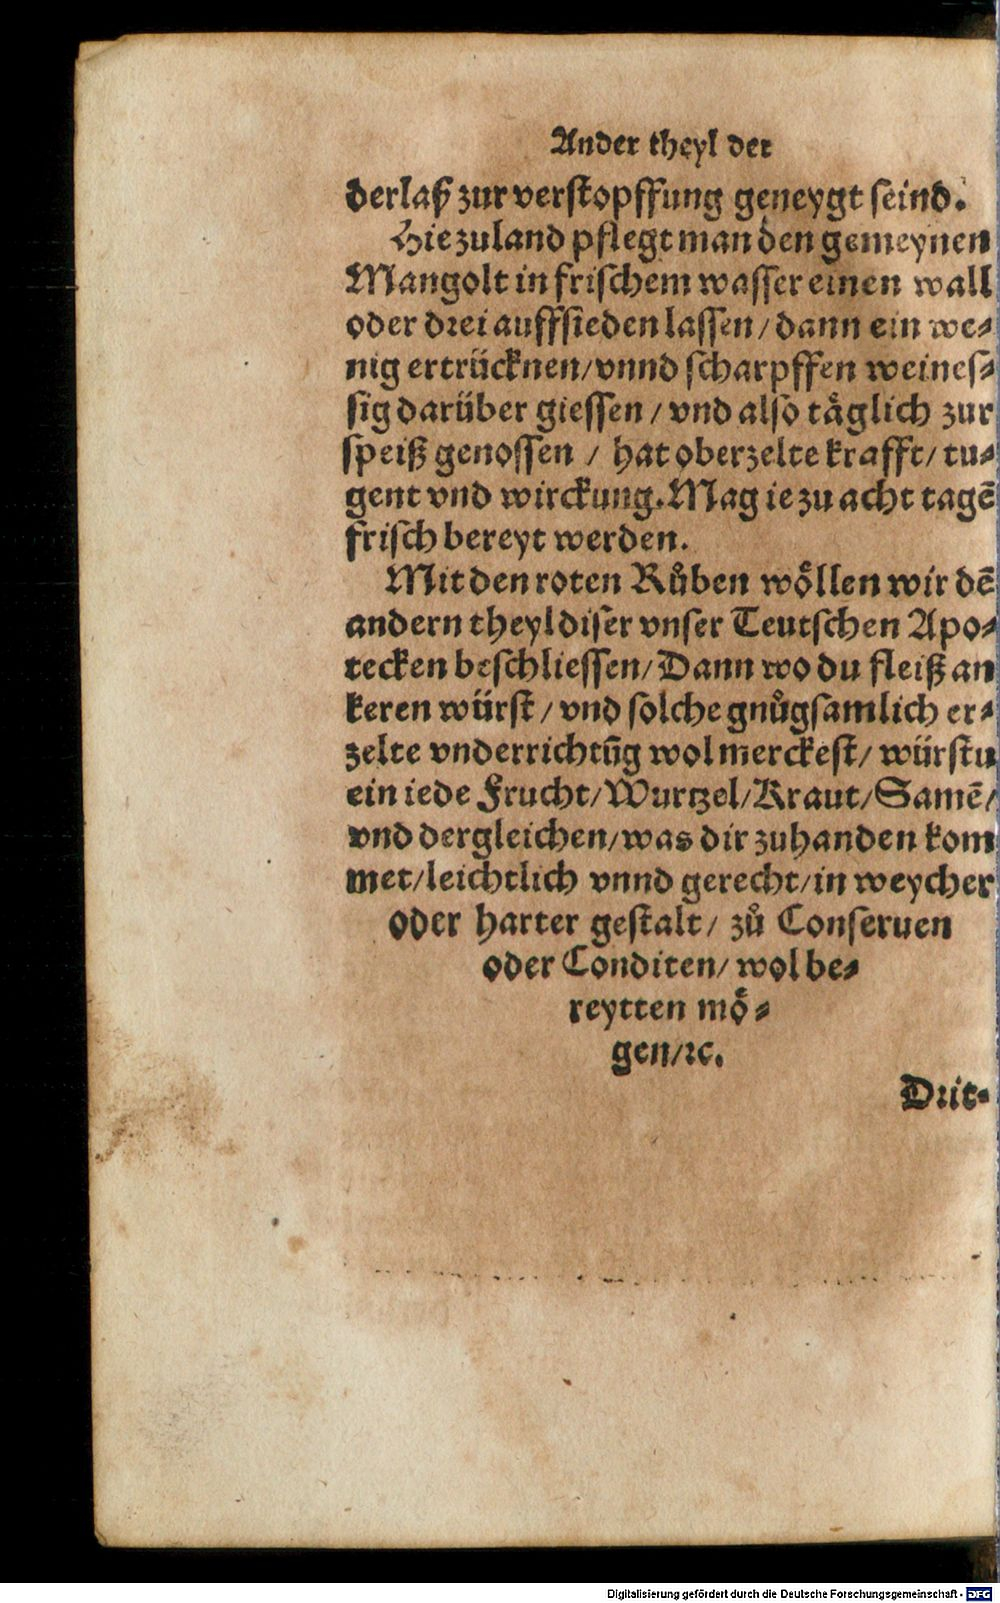 Ander theyl der
derlaß zur verstopffung geneygt seind.
Hiezuland pflegt man den gemeynen
Mangolt in frischem wasser einen wall
oder drei auffsieden lassen / dann ein we⸗
nig ertrücknen / vnnd scharpffen weines⸗
sig darüber giessen / vnd also täglich zur
speiß genossen / hat oberzelte krafft / tu⸗
gent vnd wirckung. Mag ie zu acht tagẽ
frisch bereyt werden.
Mit den roten Růben wöllen wir dẽ
andern theyl diser vnser Teutschen Apo⸗
tecken beschliessen / Dann wo du fleiß an
keren würst / vnd solche gnůgsamlich er⸗
zelte vnderrichtũg wol merckest / würstu
ein iede Frucht / Wurtzel / Kraut / Samẽ /
vnd dergleichen / was dir zuhanden kom
met / leichtlich vnnd gerecht / in weycher
oder harter gestalt / zů Conseruen
oder Conditen / wol be⸗
reytten mö⸗
gen / ꝛc.
Drit⸗
Digitalisierung gefördert durch die Deutsche Forschungsgemeinschaft - DFG